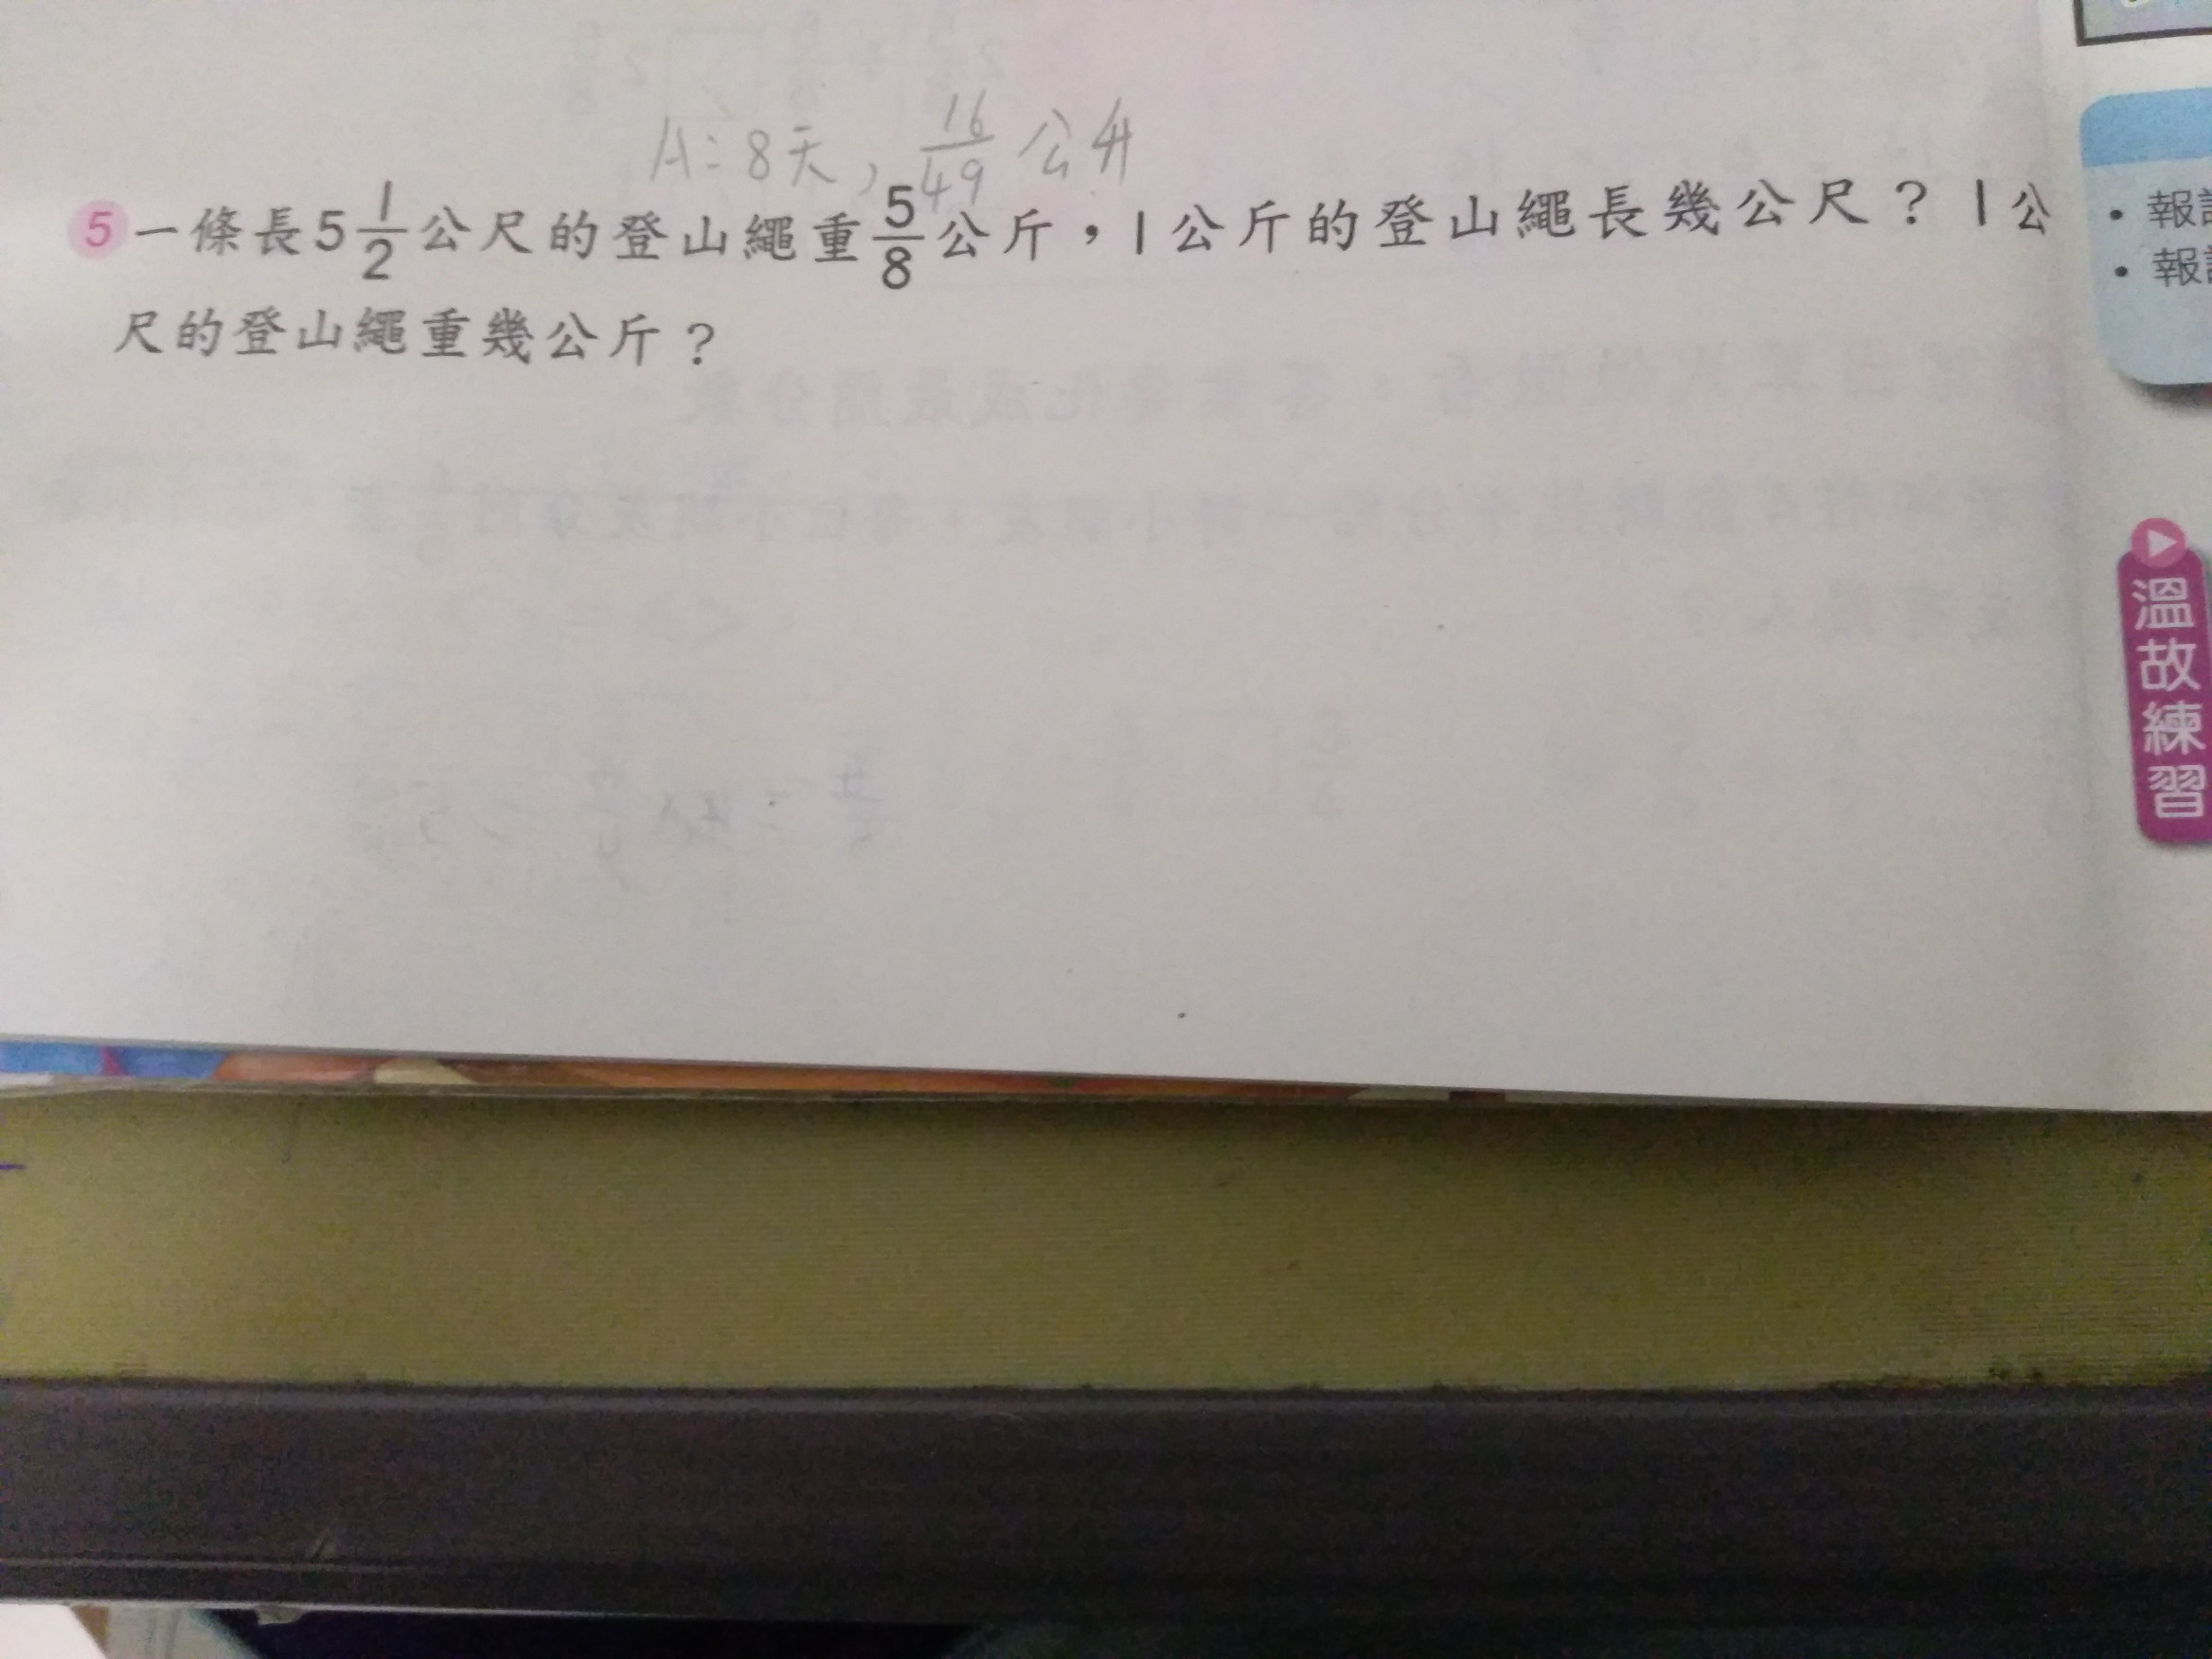 A：8天，16/49 公升
5 一條長5 1/2 公尺的登山繩重 5/8 公斤，1公斤的登山繩長幾公尺？1公
尺的登山繩重幾公斤？
・報
・報
溫故練習